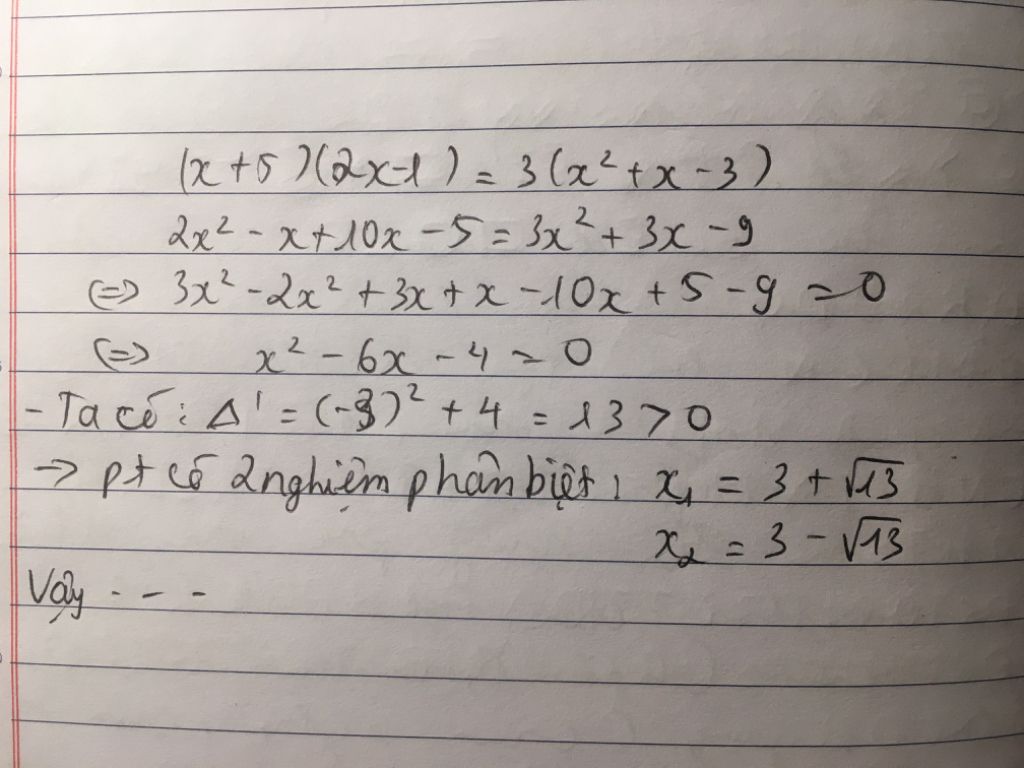 (x+5)(2x-1) = 3(x² + x - 3)
2x² - x + 10x - 5 = 3x² + 3x - 9
(=> 3x² - 2x² + 3x + x - 10x + 5 - 9 = 0
(=> x² - 6x - 4 = 0
- Ta có : Δ' = (-3)² + 4 = 13 > 0
→ pt có 2 nghiệm phân biệt : x₁ = 3 + √13
x₂ = 3 - √13
Vậy - - -